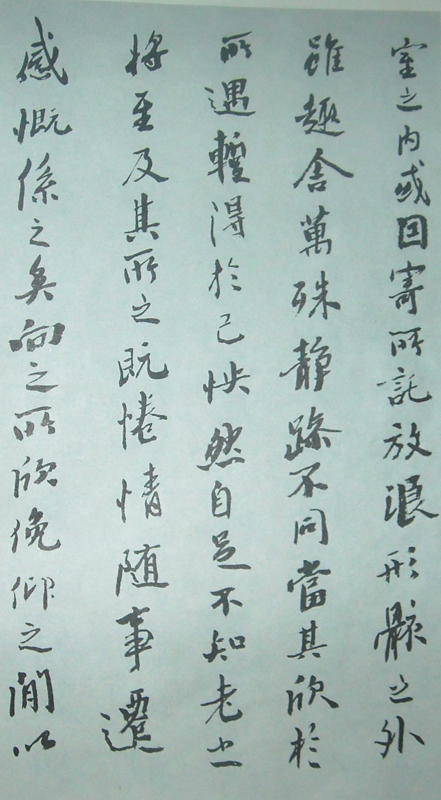 室之内或因寄所託放浪形骸之外
雖趣舍萬殊静躁不同當其欣於
所遇蹔得於己怏然自足不知老之
將至及其所之既惓情隨事遷
感慨係之矣向之所欣俛仰之閒以